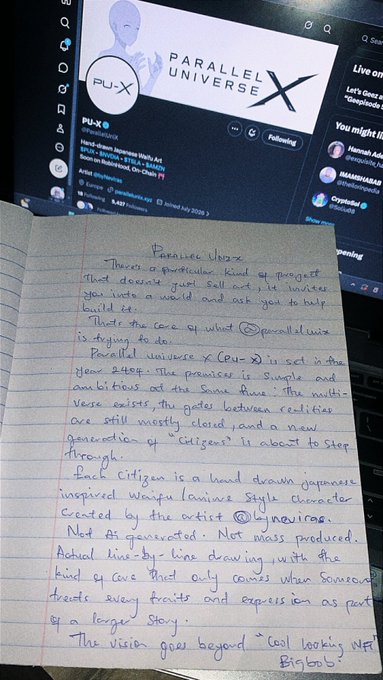 PARALLEL
UNIVERSE X
PU-X
PU-X
@ParallelUniX
Following
Hand-drawn Japanese Waifu Art
$PUX • $NVDIA • $TSLA • $AMZN
Soon on RobinHood, On-Chain
Artist @byNeviras
Europe parallelunix.xyz Joined July 2025
18 Following 9,427 Followers
Sear
Live on
Let's Geez a
"Geepisode
You might li
Hannah Ada
@exquisite_h
IMAMSHABAB
@thelionpedia
CryptoSal
@Sociu08
Show more
PARALLEL UNIX
There's a particular kind of project
that doesn't just sell art, it invites
you into a world and ask you to help
build it.
Thats the core of what @parallelunix
is trying to do.
Parallel universe X (PU-X) is set in the
year 2404. The premises is simple and
ambitious at the same time: The multi-
verse exists, the gates between realities
are still mostly closed, and a new
generation of "Citizens" is about to step
through.
Each Citizen is a hand drawn japanese
inspired Waifu/anime style character
created by the artist @byneviras.
Not Ai generated. Not mass produced.
Actual line-by-line drawing, with the
kind of care that only comes when someone
treats every traits and expression as part
of a larger story.
The vision goes beyond "Cool looking NFT"
Bigbob.